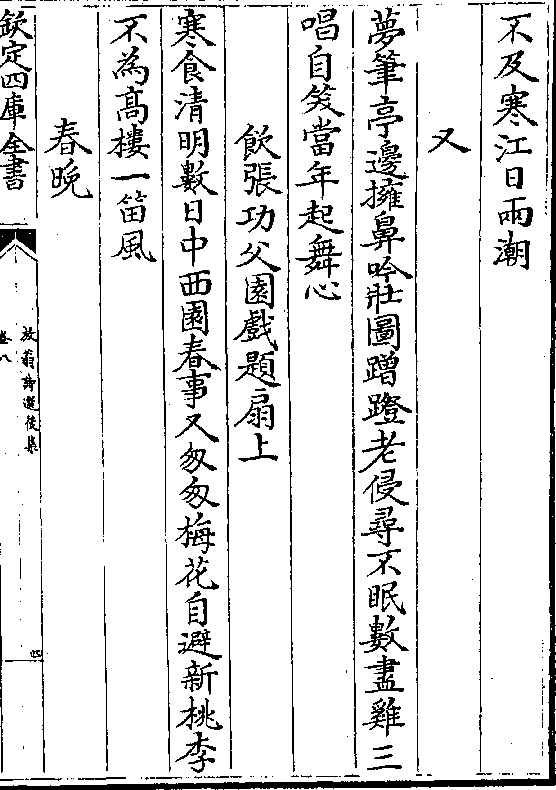 不及寒江日兩潮
又
夢筆亭邊擁鼻吟壯圖蹭蹬老侵尋不眠數盡雞三
唱自笑當年起舞心
飲張功父園戲題扇上
寒食清明數日中西園春事又匆匆梅花自避新桃李
不為髙樓一笛風
春晚
欽定四庫全書
放翁詩選後集
卷八
四